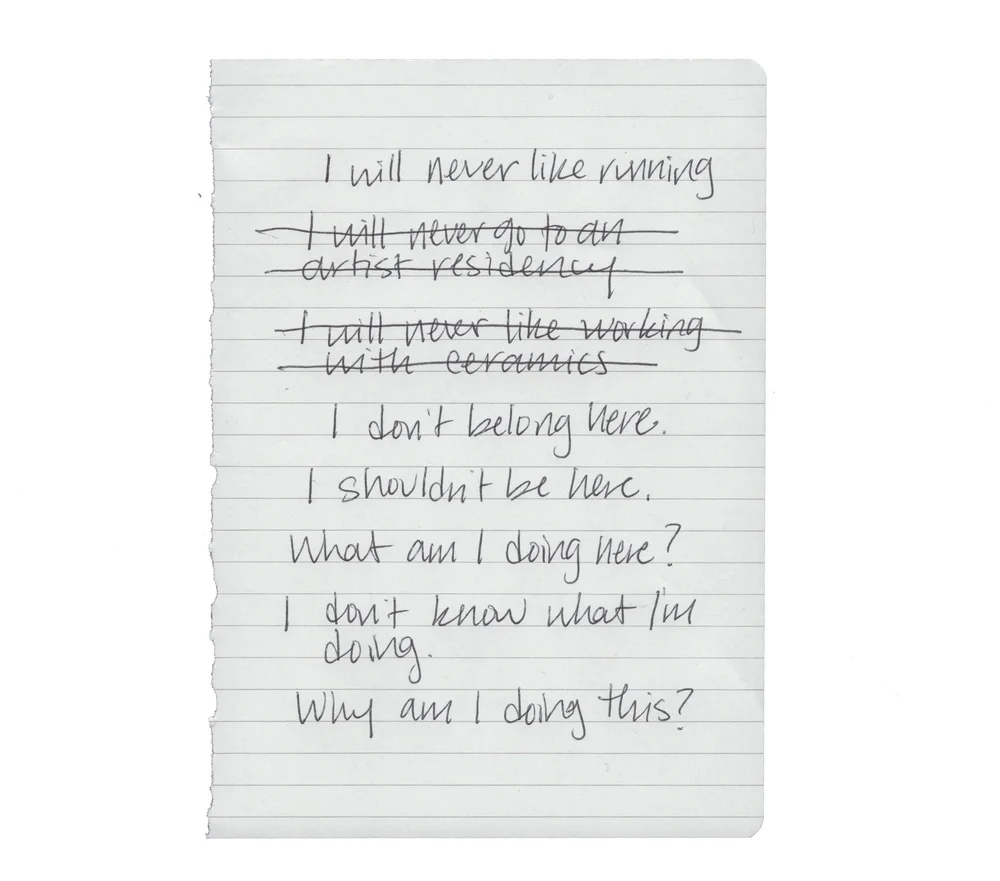 I will never like running
I will never go to an
artist residency
I will never like working
with ceramics
I don't belong here.
I shouldn't be here.
What am I doing here?
I don't know what I'm
doing.
Why am I doing this?